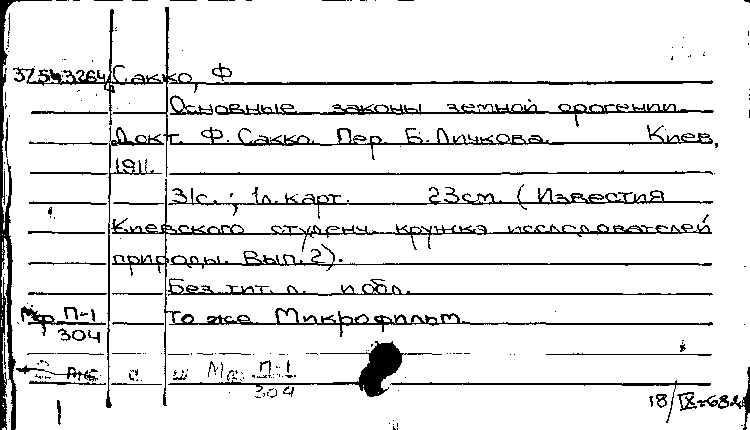 37.543264 Сакко, Ф
Основные законы земной орогении.
Докт. Ф. Сакко. Пер. Б. Личкова. Киев,
1911.
31с.; 1л. карт. 23см. (Известия
Киевского студенч. кружка исследователей
природы. Вып. 2).
Без тит. л. и обл.
Мф. П-1/304 То же. Микрофильм.
Мф П-1/304
18/IX-68